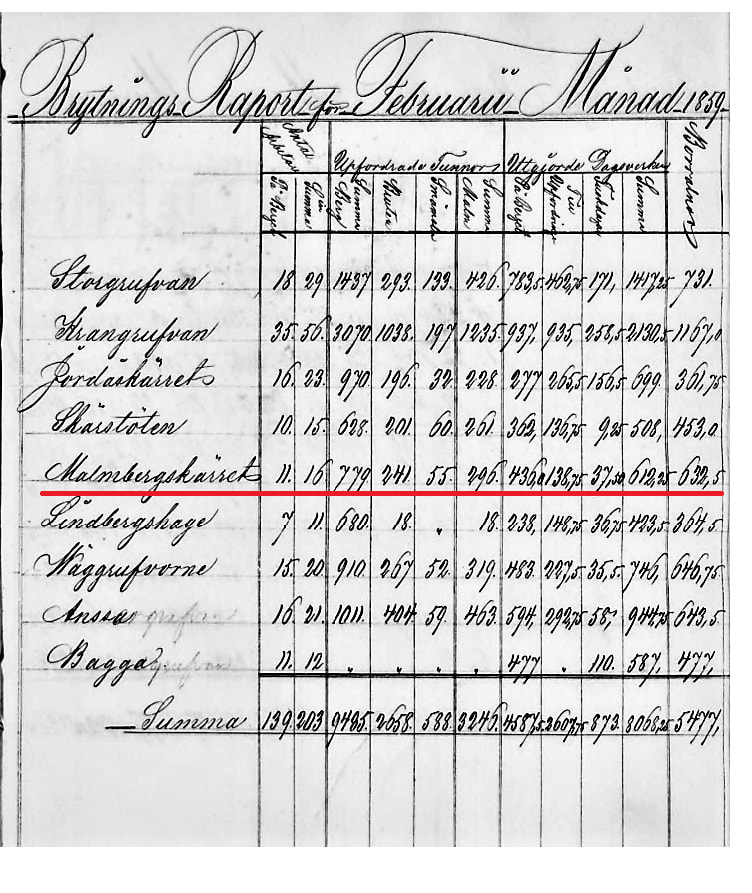 Brytnings Raport för Februarii Månad 1859
Antal Arbetare Upfordrade Tunnor Utgjorde Dagsverken Borrainor
På Berget Summa Summa Berg Smeda Malm Summa På Berget Till Upfordring Summa
Storgrufvan 18 29 1437 293. 133. 426. 783,5 462,75 171, 1417,25 731.
Krangrufvan 35. 56. 3070. 1038. 197 1235. 937, 935, 258,5 2130,5 1167,0
Jordåskärret 16. 23. 970 196. 32. 228. 277 265,5 156,5 699. 361,75
Skärstöten 10. 15. 628. 201. 60. 261. 362, 136,75 9,25 508, 453,0
Malmbergskärret 11. 16 779 241 55. 296. 436,0 138,75 37,50 612,25 632,5
Lindbergshage 7 11. 680. 18. „ 18. 238, 148,75 36,75 423,5 364,5.
Wäggrufvorne 15. 20. 910. 267 52. 319. 483. 227,5 35,5. 746, 646,75
Anssar grufvan 16. 21. 1011. 404. 59. 463. 594, 292,75 58, 944,75 643,5.
Bagga grufvan 11. 12 „ „ „ „ 477 „ 110. 587, 477,
Summa 139. 203 9485. 2658. 588. 3246. 4587,5 2607,75 873. 8068,25 5477,